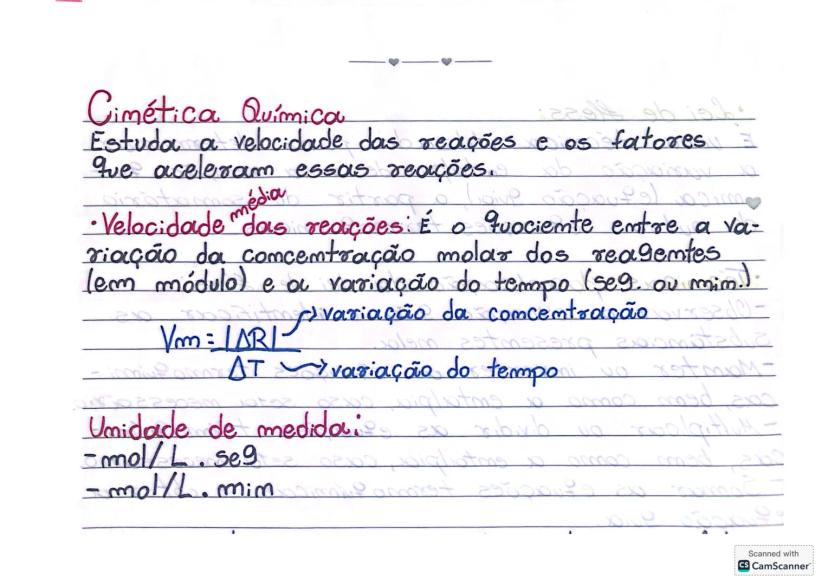 Cinética Química
Estuda a velocidade das reações e os fatores
que aceleram essas reações.
• Velocidade média das reações: É o quociente entre a va-
riação da concentração molar dos reagentes
(em módulo) e a variação do tempo (seg. ou min.)
Vm = |ΔR| → variação da concentração
ΔT → variação do tempo
Unidade de medida:
- mol/L . seg
- mol/L . min
Scanned with
CS CamScanner